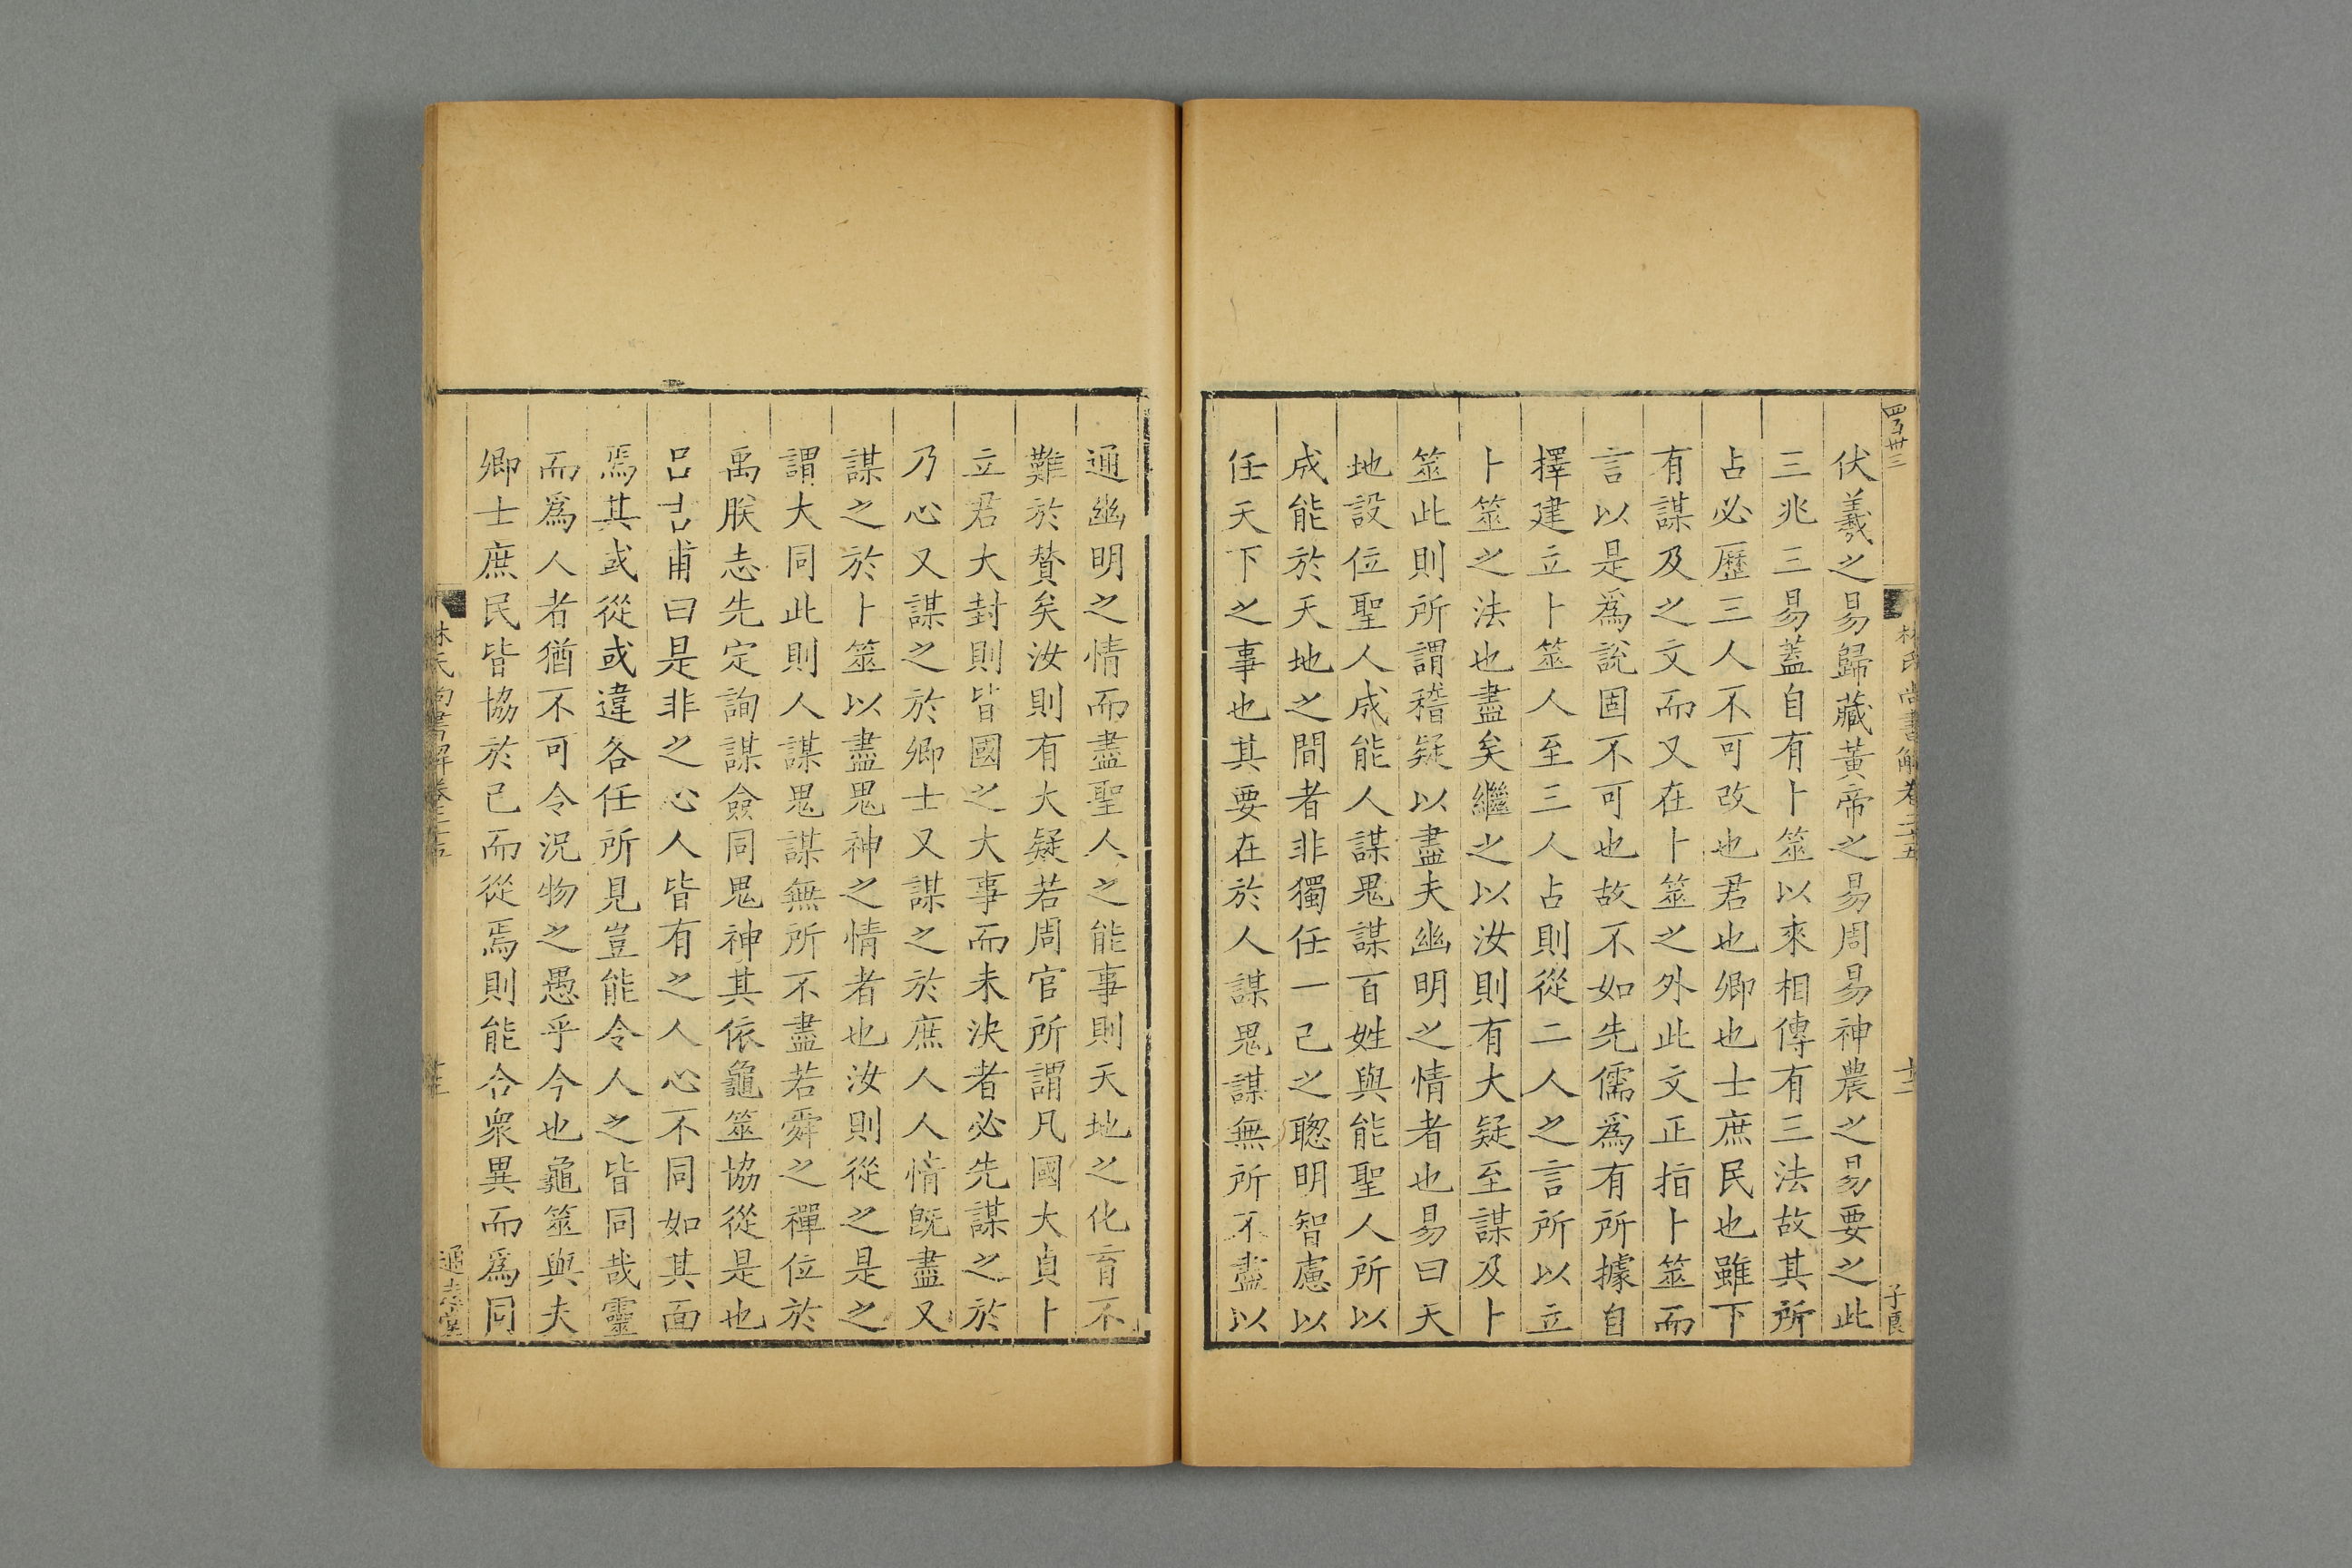 伏羲之易歸藏黃帝之易周易神農之易要之此
三兆三易蓋自有卜筮以來相傳有三法故其所
占必歷三人不可改也君也卿也士庶民也雖下
有謀及之文而又在卜筮之外此文正指卜筮而
言以是爲說固不可也故不如先儒爲有所據自
擇建立卜筮人至三人占則從二人之言所以立
卜筮之法也盡矣繼之以汝則有大疑至謀及卜
筮此則所謂稽疑以盡夫幽明之情者也易曰天
地設位聖人成能人謀鬼謀百姓與能聖人所以
成能於天地之間者非獨任一己之聰明智慮以
任天下之事也其要在於人謀鬼謀無所不盡以
通幽明之情而盡聖人之能事則天地之化育不
難於賛矣汝則有大疑若周官所謂凡國大貞卜
立君大封則皆國之大事而未決者必先謀之於
乃心又謀之於卿士又謀之於庶人人情旣盡又
謀之於卜筮以盡鬼神之情者也汝則從之是之
謂大同此則人謀鬼謀無所不盡若舜之禪位於
禹朕志先定詢謀僉同鬼神其依龜筮協從是也
呂吉甫曰是非之心人皆有之人心不同如其面
焉其或從或違各任所見豈能令人之皆同哉靈
而爲人者猶不可令況物之愚乎今也龜筮與夫
卿士庶民皆協於己而從焉則能合衆異而爲同
林氏尚書解卷二十五
子良
通志堂